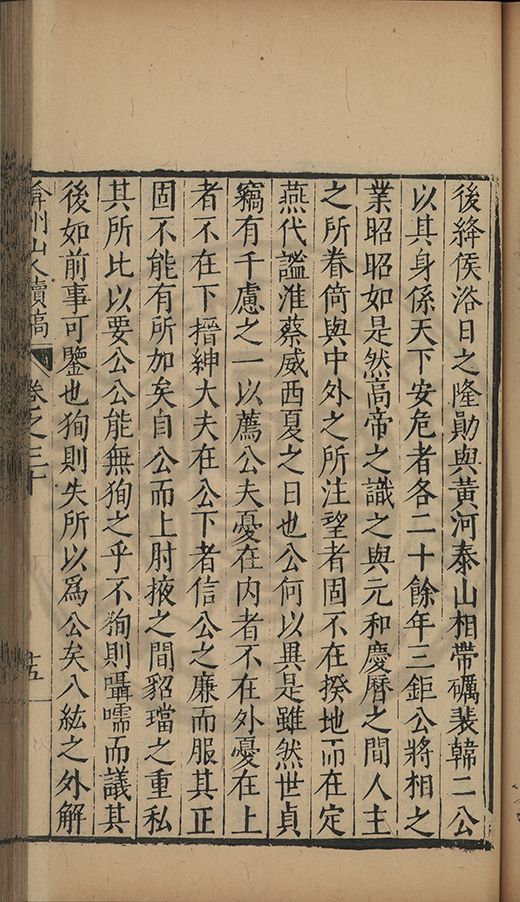 後絳侯浴日之隆勛與黃河泰山相帶礪裴韓二公
以其身係天下安危者各二十餘年三鉅公將相之
業昭昭如是然高帝之識之與元和慶曆之間人主
之所眷倚與中外之所注望者固不在揆地而在定
燕代謐淮蔡威西夏之日也公何以異是雖然世貞
竊有千慮之一以薦公夫憂在內者不在外憂在上
者不在下搢紳大夫在公下者信公之廉而服其正
固不能有所加矣自公而上肘掖之間貂璫之重私
其所比以要公公能無狥之乎不狥則囁嚅而議其
後如前事可鑒也狥則失所以爲公矣八紘之外解
弇州山人續稿 卷之三十 十五